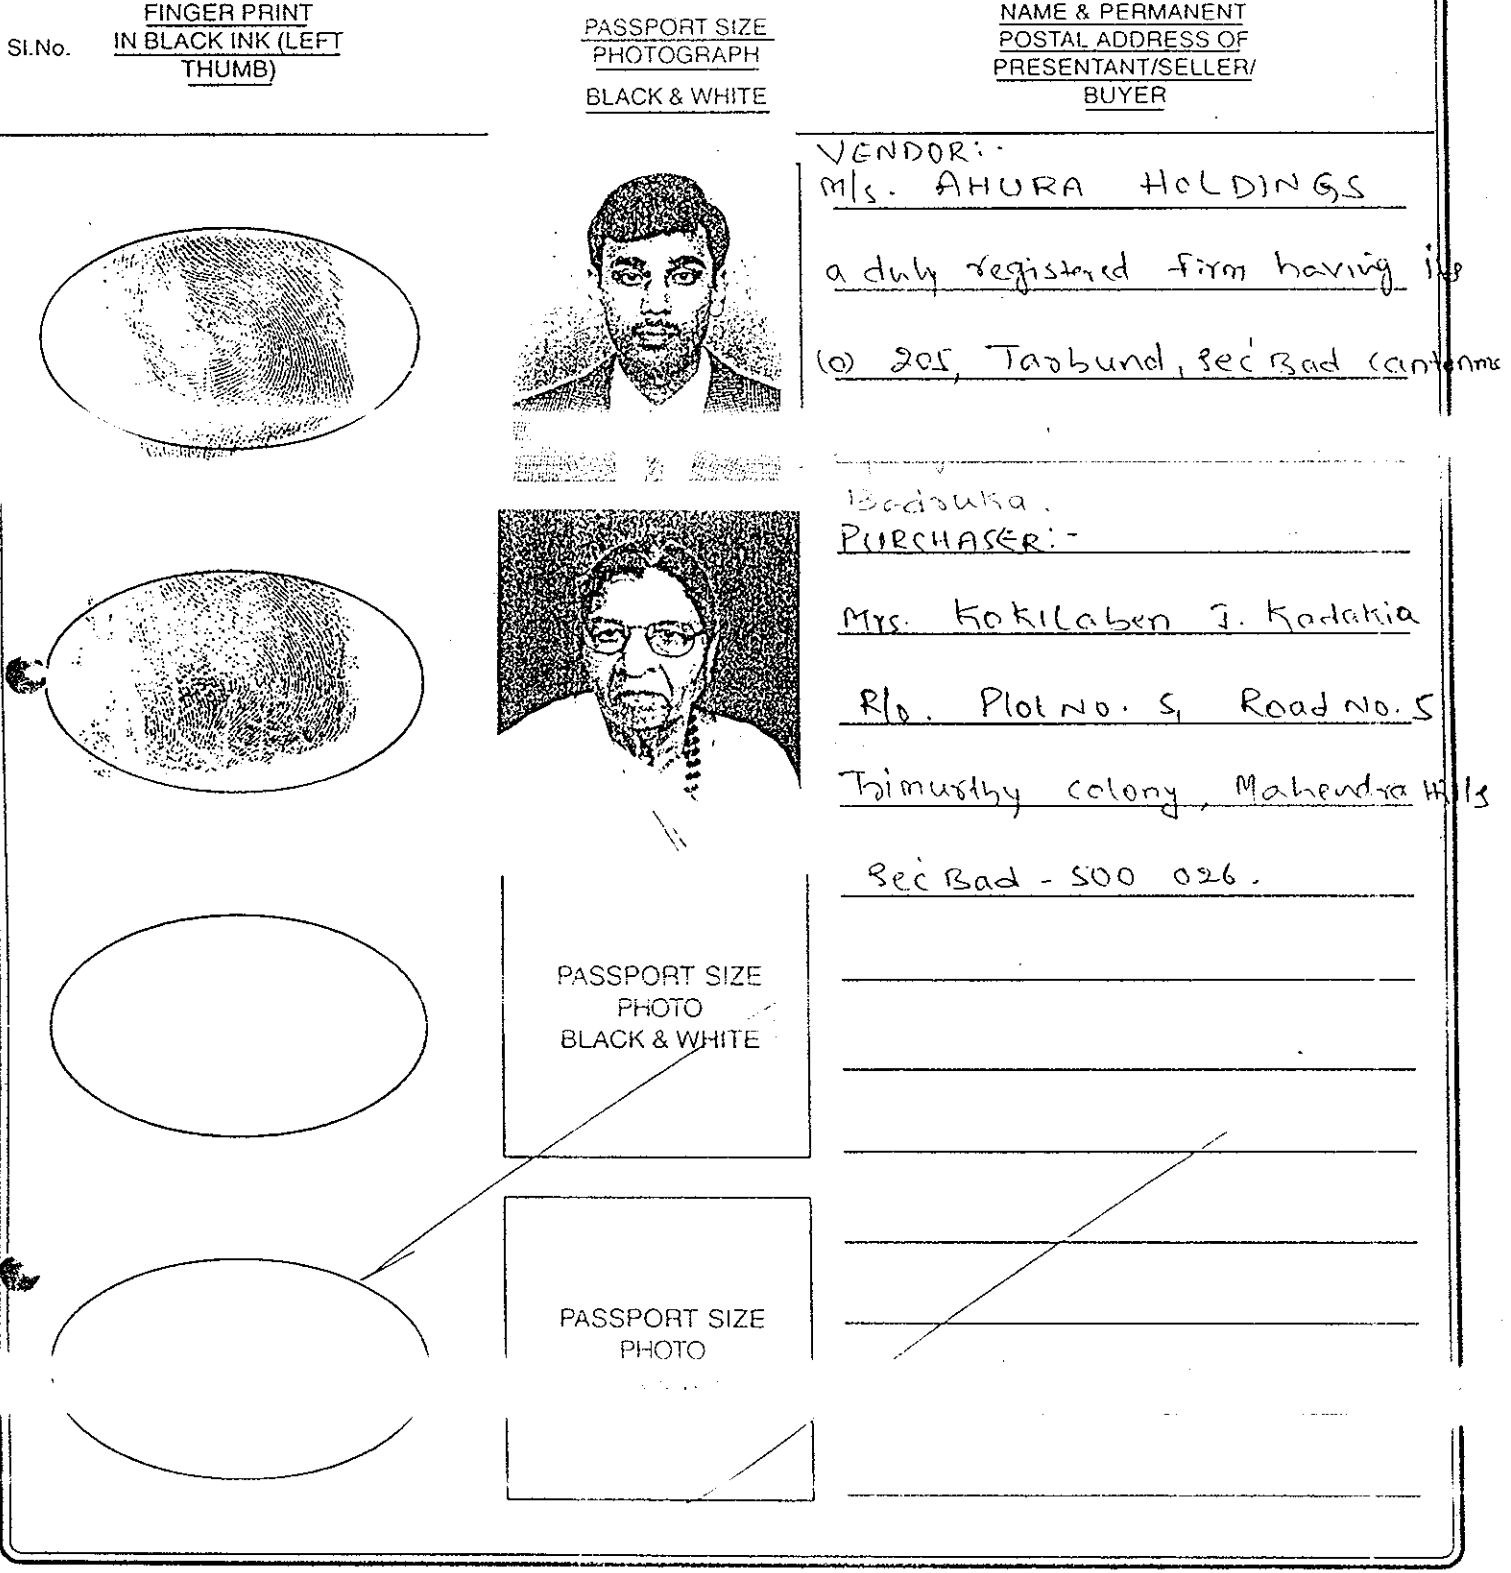 Sl.No.
FINGER PRINT
IN BLACK INK (LEFT
THUMB)
PASSPORT SIZE
PHOTOGRAPH
BLACK & WHITE
NAME & PERMANENT
POSTAL ADDRESS OF
PRESENTANT/SELLER/
BUYER
VENDOR:-
M/s. AHURA HOLDINGS
a duly registered firm having its
(o) 205, Tarbund, Sec'Bad
Badruka.
PURCHASER:-
Mrs. Kokilaben J. Kadakia
R/o. Plot No. 5, Road No. 5
Trimurthy colony, Mahendra Hills
Sec'Bad - 500 026.
PASSPORT SIZE
PHOTO
BLACK & WHITE
PASSPORT SIZE
PHOTO